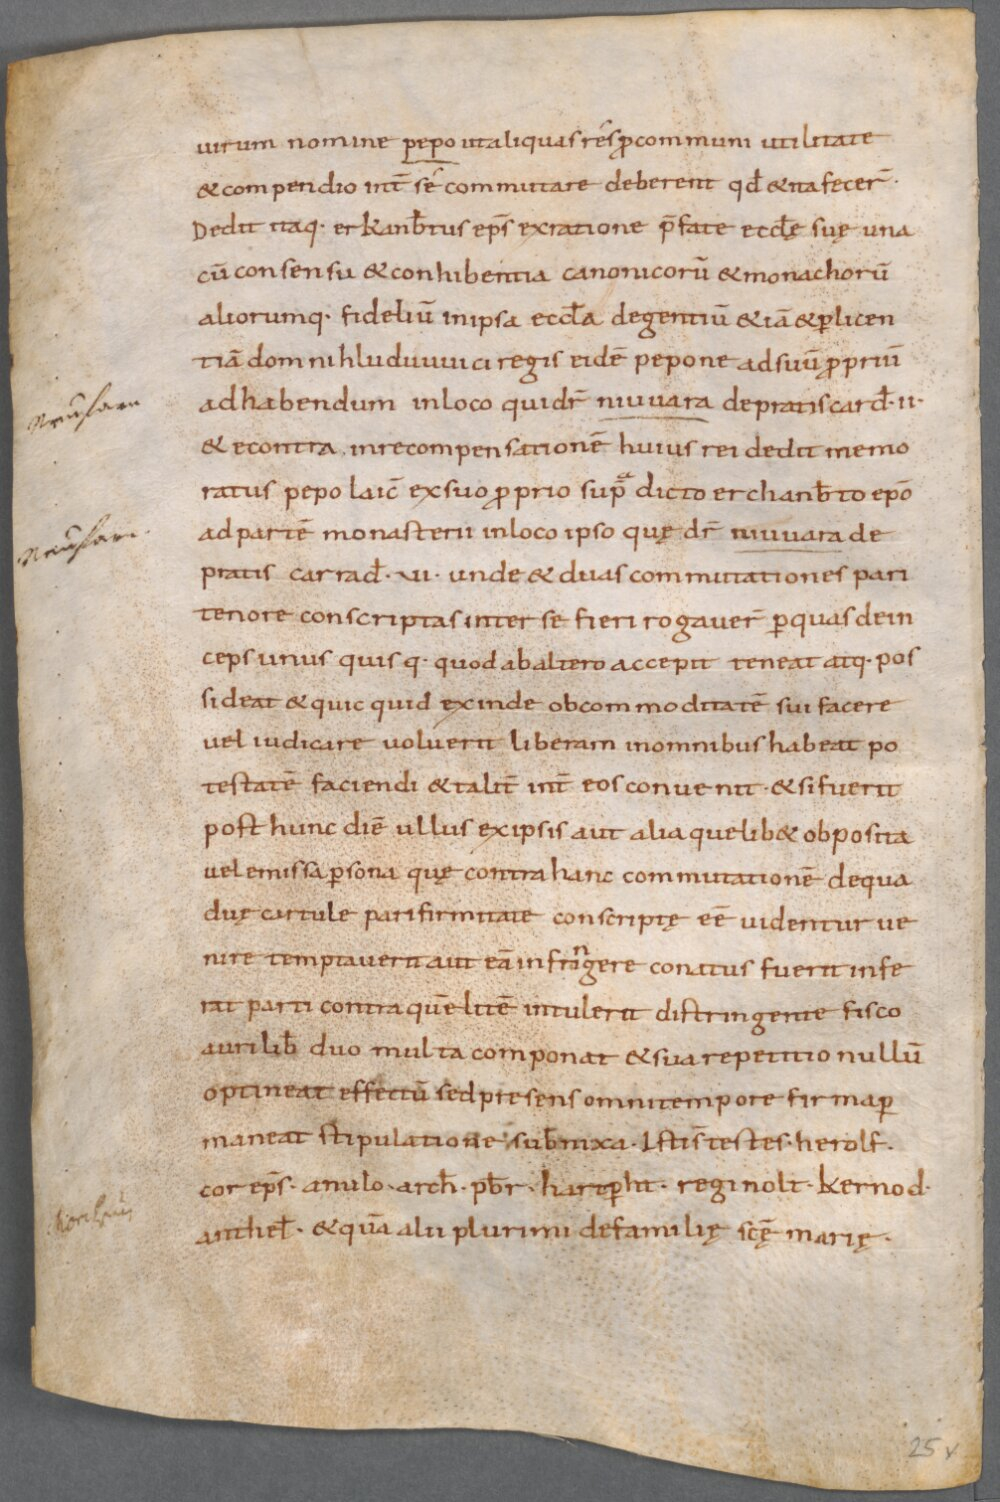 uirum nomine pepo ut aliquas res ꝓ communi utilitate
& compendio int̄ sé commutare deberent qđ & ita fecer̄·
Dedit itaq· erkanb̄tus ep̄s ex ratione p̄fate eccłę suę una
cū consensu & conhibentia canonicorū & monachorū
aliorumq· fideliū in ipsa eccła degentiū & iā & ꝑ licen
tiā domni hluduuuici regis eidē pepone ad suū ꝓpriū
Neufarn
ad habendum in loco qui dr̄ niuuara de pratis carđ·ii·
& econtra in recompensationē huius rei dedit memo
ratus pepo laic̄ ex suo ꝓprio sup̄ᵃ dicto erchanb̄to epō
Neufarn
ad partē monasterii in loco ipso quę dr̄ niuuara de
pratis carrađ·vii· unde & duas commutationes pari
tenore conscriptas inter se fieri rogauer̄ ꝑ quas dein
ceps unus quisq· quod ab altero accepit teneat atq· pos
sideat & quicquid exinde ob commoditatē sui facere
uel iudicare uoluerit liberam in omnibus habeat po
testatē faciendi & talit̄ int̄ eos conuenit· & si fuerit
post hunc diē ullus ex ipsis aut alia quelib& obposita
uel emissa ꝑsona quę contra hanc commutationē de qua
duę cartule pari firmitate conscriptę eē uidentur ue
nire temptauerit aut eā infringere conatus fuerit infe
rat parti contra quē litē intulerit distringente fisco
auri lib̄ duo multa componat & sua repetitio nullū
optineat effectū sed presens omni tempore firma ꝑ
maneat stipulatione subnixa· Isti s̄ testes· herolf·
cor ep̄s· anulo· arch̄· pb̄r· hartꝑht· reginolt· kernod·
anthel̄· & quā alii plurimi de familię scę̄ marię·
25v